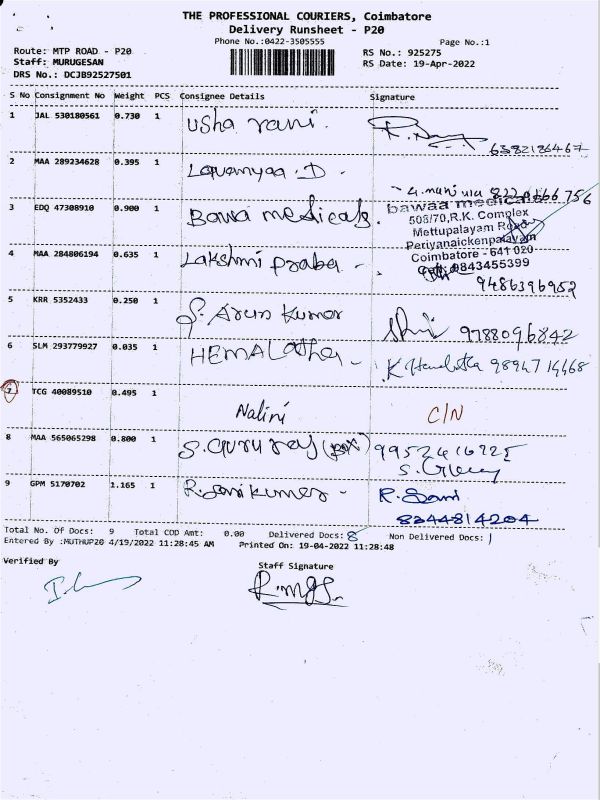 THE PROFESSIONAL COURIERS, Coimbatore
Delivery Runsheet - P20
Phone No.:0422-3505555
Page No.:1
Route: MTP ROAD - P20
RS No.: 925275
Staff: MURUGESAN
RS Date: 19-Apr-2022
DRS No.: DCJB92527501
S No Consignment No Weight PCS Consignee Details Signature
1 JAL 530180561 0.730 1 usha rani.
6382186467
2 MAA 289234628 0.395 1 Lavanyaa.D -
3 EDQ 47308910 0.900 1 Bawa medicals.
bawaa medicals
508/70,R.K. Complex
Mettupalayam Road
Periyanaickenpalayam
Coimbatore - 641 020
9843455399
4 MAA 284806194 0.635 1 Lakshmi praba -
9486396952
5 KRR 5352433 0.250 1 S. Arun Kumar
9788096842
6 SLM 293779927 0.035 1 HEMALatha - K Hemalatha 9894714668
7 TCG 40089510 0.495 1 Nalini C/N
8 MAA 565065298 0.800 1 S.Guru raj (box)
9 GPM 5170702 1.165 1 R.Sanikumar - R. Sani
8344814204
Total No. Of Docs: 9 Total COD Amt: 0.00 Delivered Docs: 8 Non Delivered Docs: 1
Entered By :MUTHUP20 4/19/2022 11:28:45 AM Printed On: 19-04-2022 11:28:48
Verified By
Staff Signature